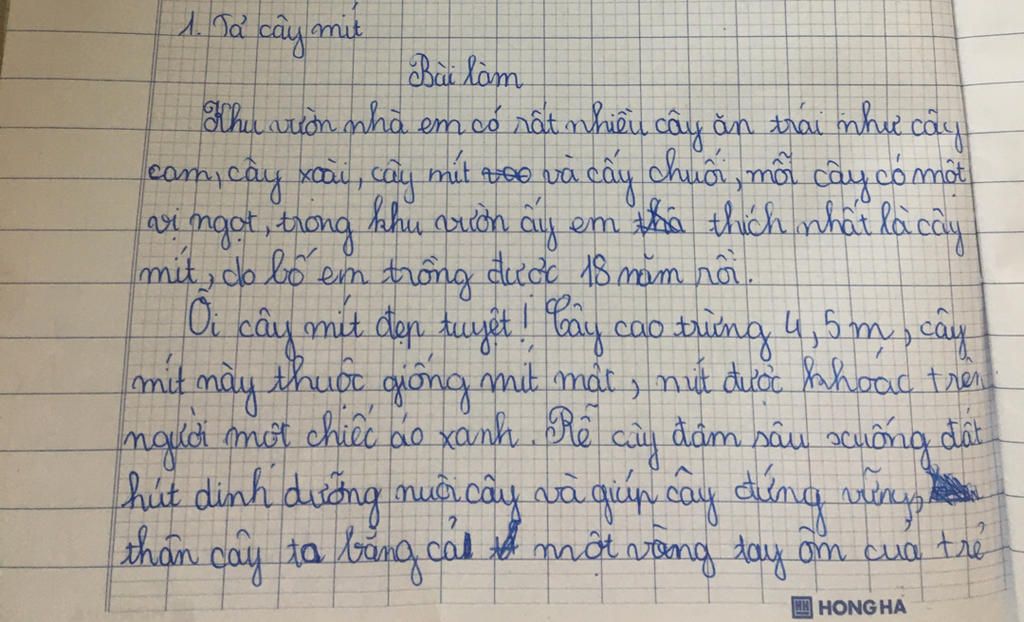 1. Tả cây mít
Bài làm
Khu vườn nhà em có rất nhiều cây ăn trái như cây
cam, cây xoài, cây mít và cây chuối, mỗi cây có một
vị ngọt, trong khu vườn ấy em thích nhất là cây
mít, do bố em trồng được 18 năm rồi.
Ôi cây mít đẹp tuyệt! Cây cao trừng 4,5 m, cây
mít này thuộc giống mít mật, nít được khoác trên
người một chiếc áo xanh. Rễ cây đâm sâu xuống đất
hút dinh dưỡng nuôi cây và giúp cây đứng vững,
thân cây to bằng cả một vòng tay ôm của trẻ
HONG HA